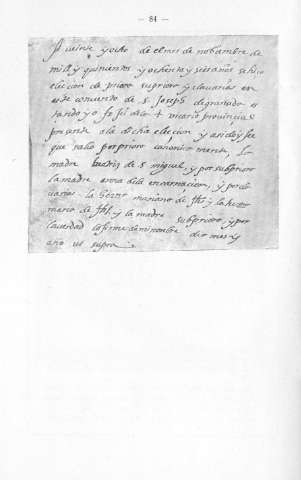 — 84 —
A veinte y ocho de el mes de nobiembre de
mill y quinientos y ochenta y seis años se hiço
eleccion de priora supriora y clavarias en
este convento de S. Joseph de granada es
tando yo fr Ju de la + vicario provincial
presente a la dicha eleccion y ansi doy fee
que salio por priora canonicamente, la
madre beatriz de S. miguel, y por subpriora
la madre anna de la encarnacion, y por cla
varias la herna mariana de Jhs y la herna
maria de Jhs, y la madre subpriora, y por
la verdad lo firme de mi nombre dia mes y
año ut supra